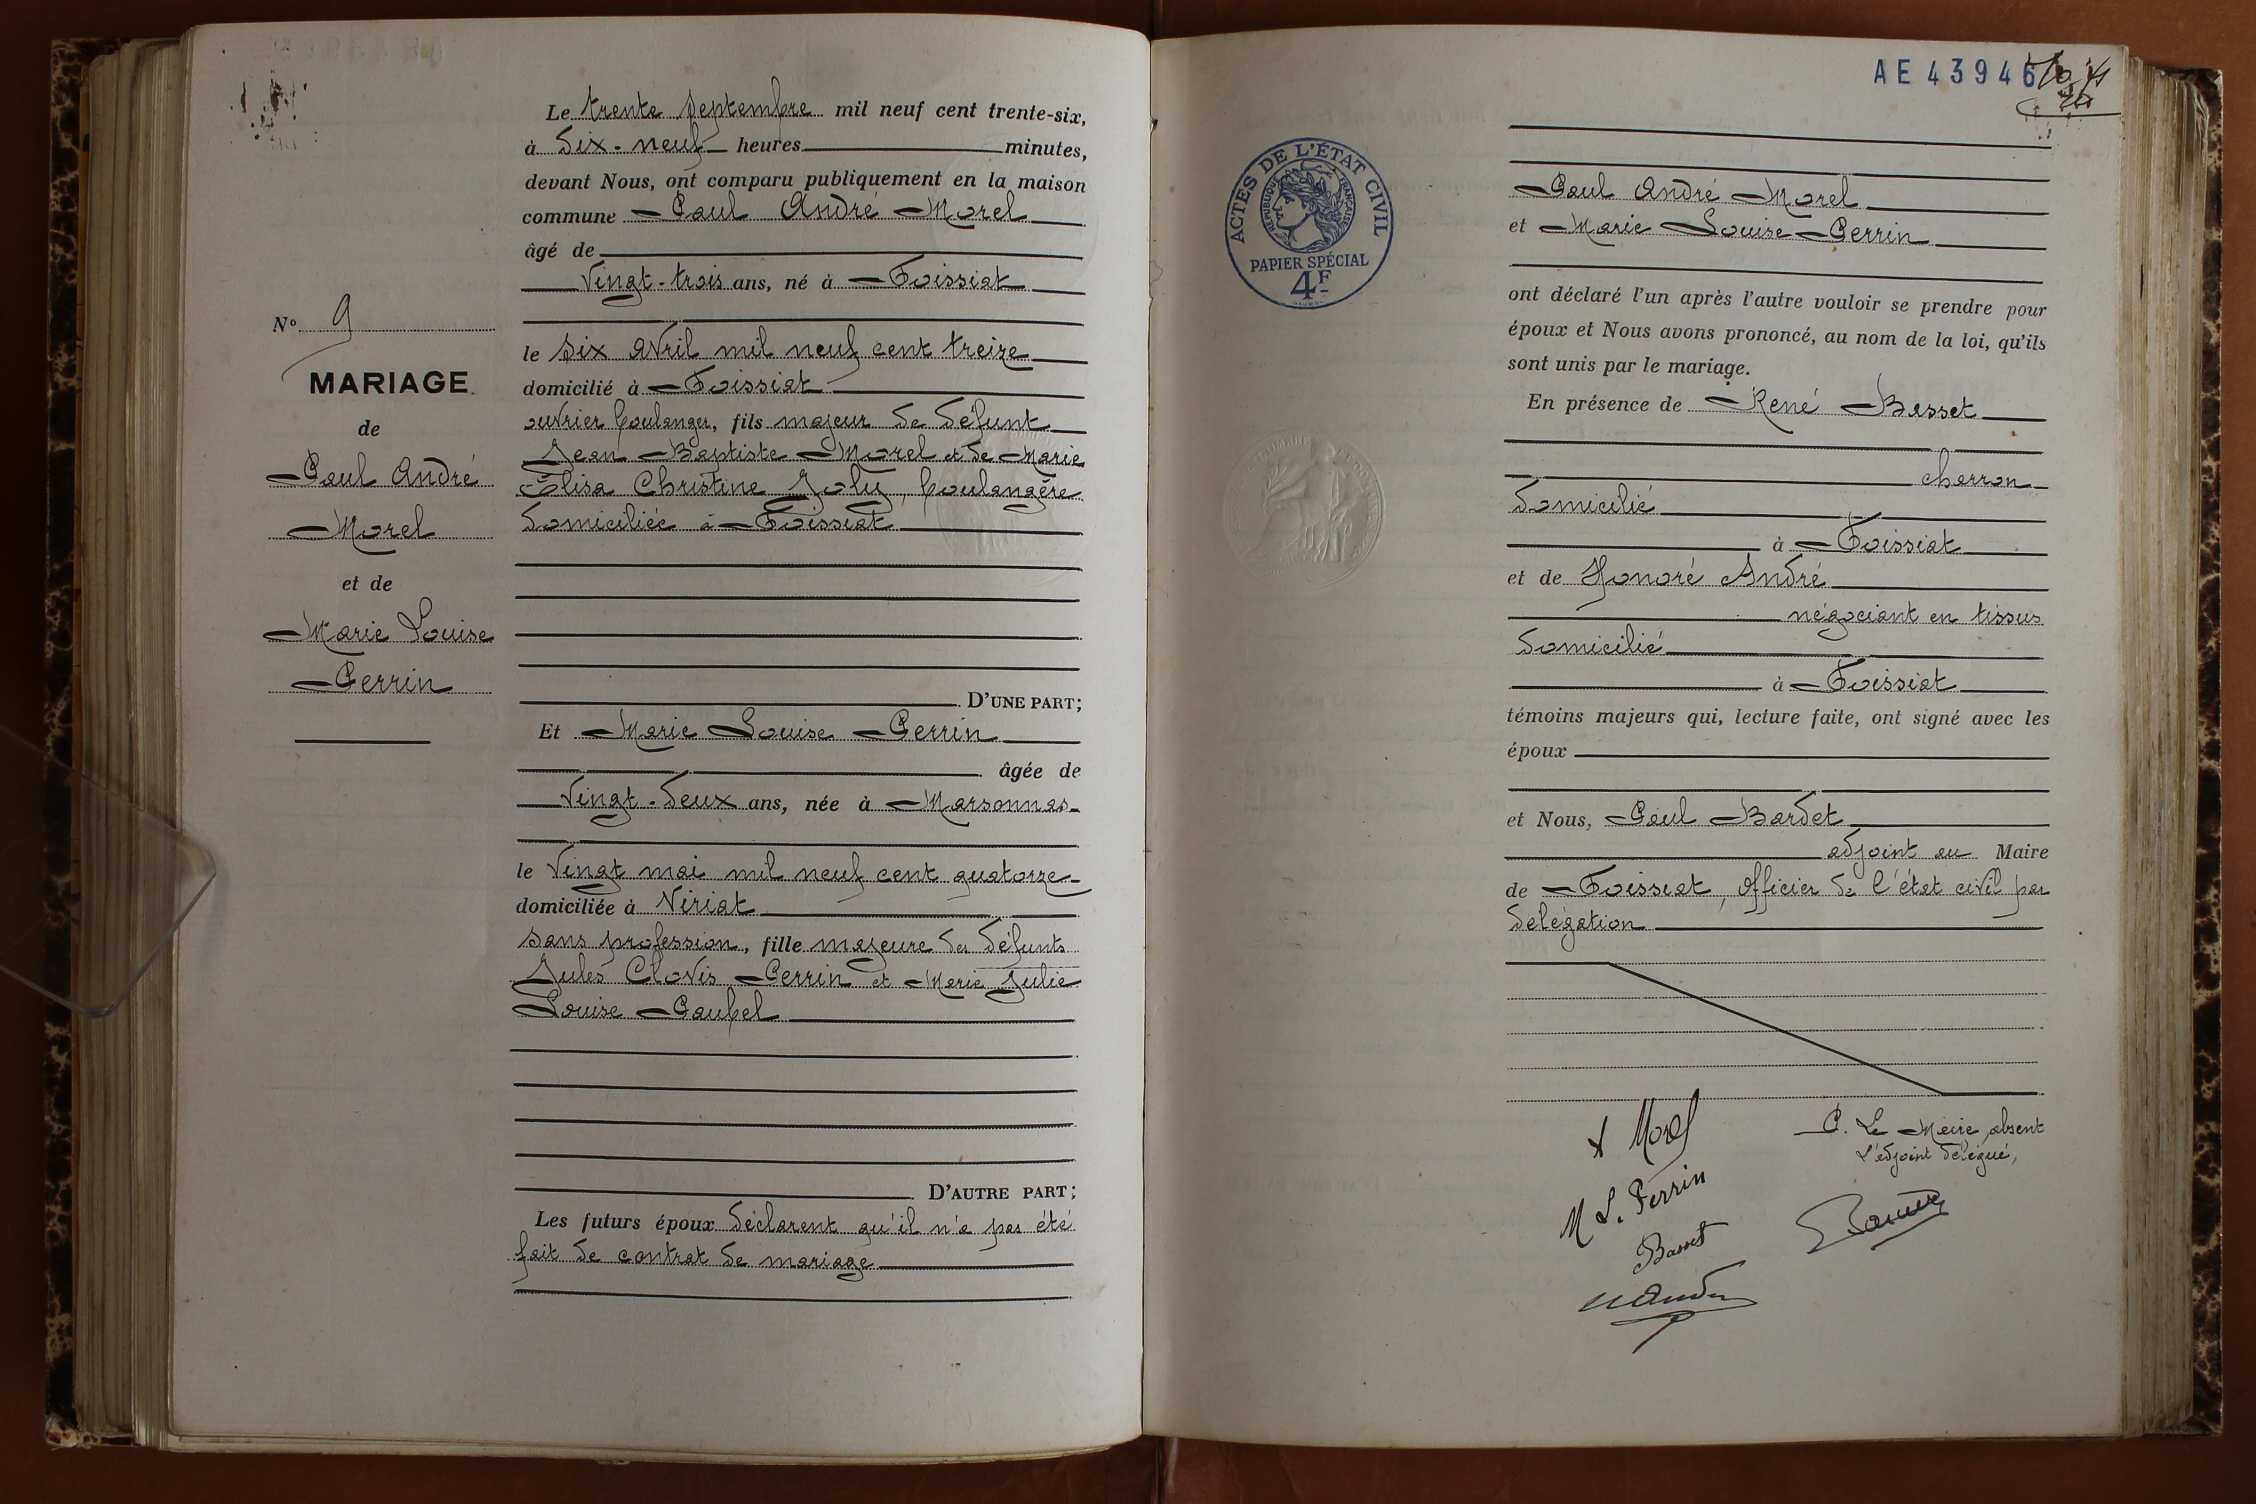 Le trente septembre mil neuf cent trente-six,
à dix-neuf heures minutes,
devant Nous, ont comparu publiquement en la maison
commune Paul André Morel
âgé de
vingt-trois ans, né à Foissiat
le six avril mil neuf cent treize
domicilié à Foissiat
ouvrier boulanger, fils majeur de défunt
Jean Baptiste Morel et de Marie
Élisa Christine Joly, boulangère
domiciliée à Foissiat
D'UNE PART;
Et Marie Louise Perrin
âgée de
vingt-deux ans, née à Marsonnas
le vingt mai mil neuf cent quatorze
domiciliée à Viriat
sans profession, fille majeure des défunts
Jules Clovis Perrin et Marie Julie
Louise Paubel
D'AUTRE PART;
Les futurs époux déclarent qu'il n'a pas été
fait de contrat de mariage
N° 9
MARIAGE
de
Paul André
Morel
et de
Marie Louise
Perrin
AE 43946
ACTES DE L'ÉTAT CIVIL
RÉPUBLIQUE FRANÇAISE
PAPIER SPÉCIAL
4F
Paul André Morel
et Marie Louise Perrin
ont déclaré l'un après l'autre vouloir se prendre pour
époux et Nous avons prononcé, au nom de la loi, qu'ils
sont unis par le mariage.
En présence de René Basset
charron
domicilié
à Foissiat
et de Honoré André
négociant en tissus
domicilié
à Foissiat
témoins majeurs qui, lecture faite, ont signé avec les
époux
et Nous, Paul Bardet
adjoint au Maire
de Foissiat, officier de l'état civil par
délégation
P. Le Maire absent
L'adjoint délégué,
Morel
M L. Perrin
Basset